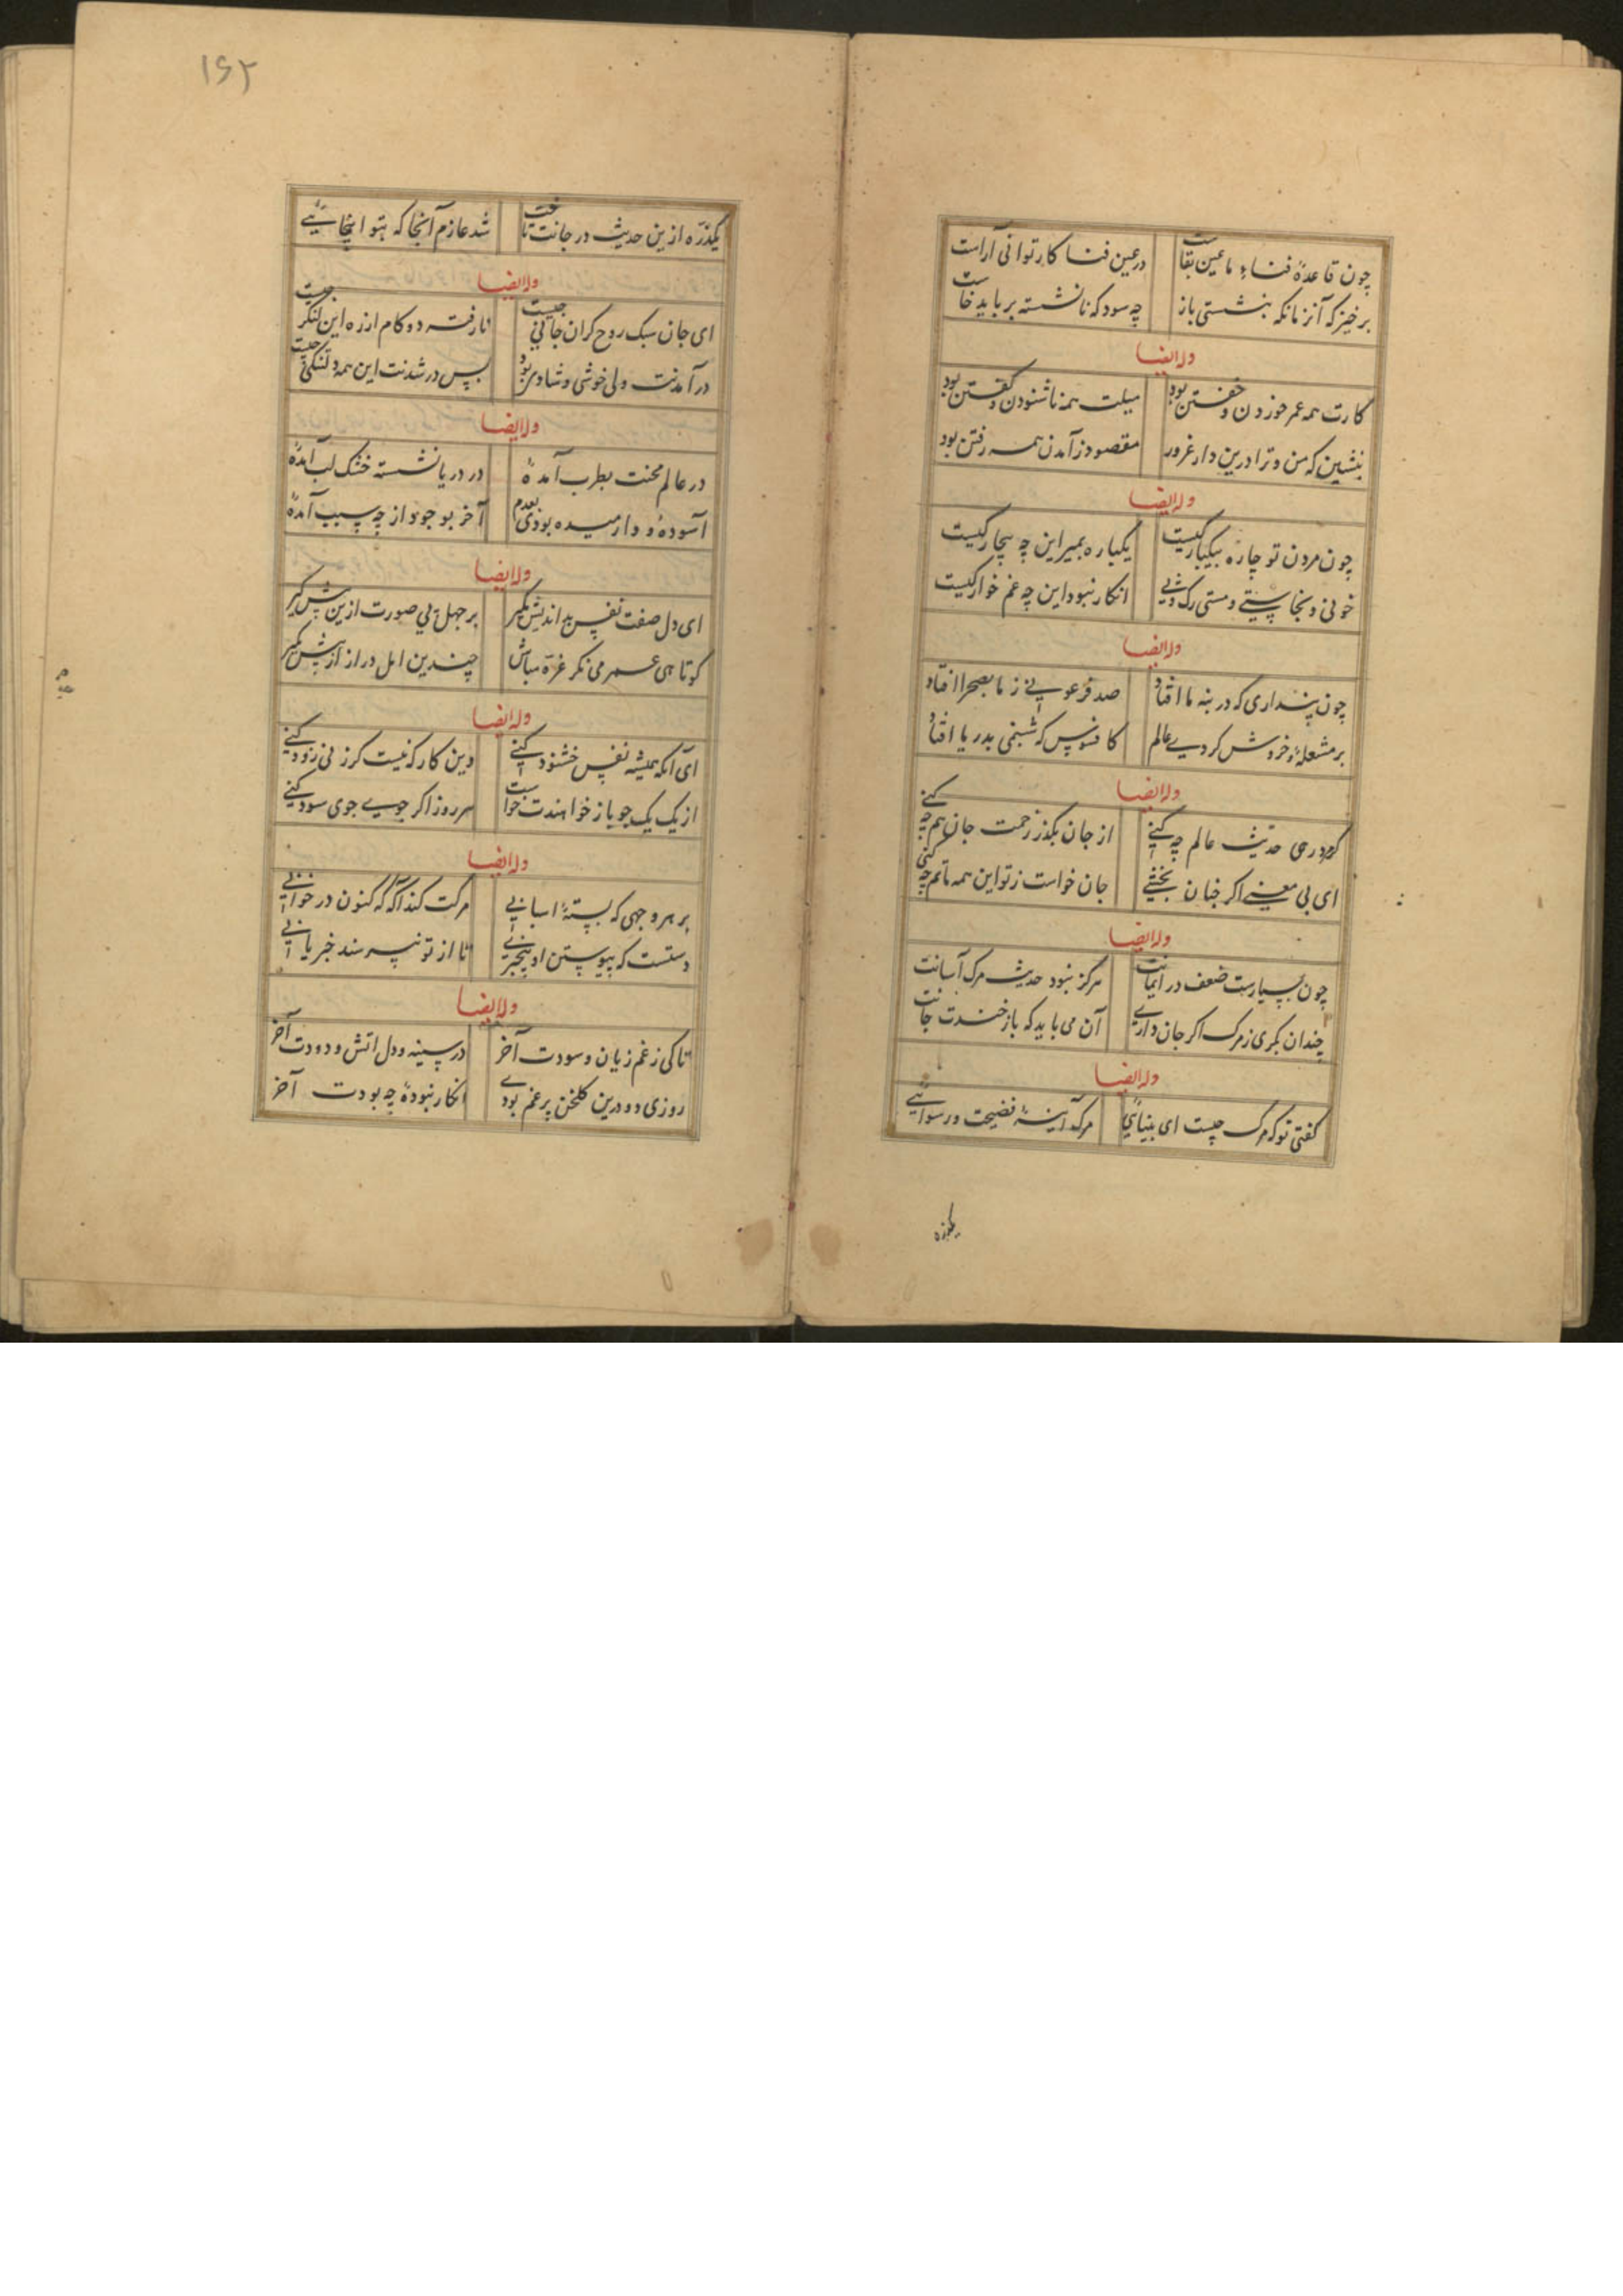 چون قاعدهٔ فناء ما عین بقاست
در عین فنا کار توانی آراست
برخیز که آنزمانکه بنشستی باز
چه سود که نانشسته بر باید خاست
وله ایضا
کارت همه عمر خوردن و خفتن بود
میلت همه ناشنودن و گفتن بود
بنشین که من و ترا درین دار غرور
مقصود ز آمدن همه رفتن بود
وله ایضا
چون مردن تو چاره بیکبارکیست
یکباره بمیر این چه بیچارکیست
خونی و نجاستی و مشتی رک و پی
انکار نبود این چه غم خوارکیست
وله ایضا
چون پنداری که در بنه ما افتاد
صد فرعونی ز ما بصحرا افتاد
بر مشعله و خروش کردی عالم
کافسوس که شبنمی بدریا افتاد
وله ایضا
حدیث عالم چه کنی
از جان بگذر زحمت جان هم چه کنی
ای بی معنی اکر
جان خواست ز تو این همه ماتم چه کنی
وله ایضا
چون بسیارست ضعف در ایمانت
هرکز نبود حدیث مرک آسانت
چندان بکری ز مرک اکر جان داری
آن می باید که باز خندت جانت
وله ایضا
کفتی تو که مرک چیست ای بینایی
مرک آینهٔ فضیحت و رسوایی
یکذره
۱۶۲
یکذره ازین حدیث در جانت تافت
شد عازم آنجا که بتو اینجاییی
وله ایضا
ای جان سبک روح کران جانی چیست
نارفته دو کام ازره این لنکی چیست
در آمدنت ولی خوشی و شادی بود
پس در شدنت این همه دلتنکی چیست
وله ایضا
در عالم محنت بطرب آمدهٔ
در دریا نشسته خشک لب آمدهٔ
آسوده و آرمیده بودی بعدم
آخر بوجود از چه سبب آمدهٔ
وله ایضا
ای دل صفت نفس بد اندیش مگیر
بر جهل پی صورت ازین پیش مگیر
کوتاهی عمر می نکر غره مباش
چندین امل دراز از پیش مگیر
وله ایضا
آی آنکه همیشه نفس خشنود کنی
وین کار که نیست کرزنی زود کنی
از یک یک جو باز خواهندت خواست
هر روز اکر جوی جوی سود کنی
وله ایضا
بر هر وجهی که بستهٔ اسبابی
مرکت کند آگه که کنون در خوابی
دستست که پیوستن او بیخبری
تا از تو نپرسند خبر یابی
وله ایضا
تا کی ز غم زیان و سودت آخر
در سینه و دل اتش و دودت آخر
روزی دو درین کلخن پر غم بودی
انکار نبودهٔ چه بودت آخر